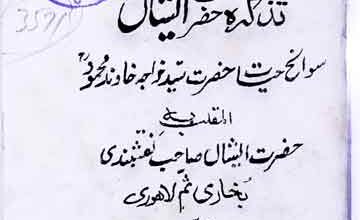 تذکرہ حضرت ایشاں
سوانح حیات حضرت سید خواجہ خاوند محمودؒ
المقلب بہ
حضرت ایشاں صاحب نقشبندی
بخاری ثم لاہوری